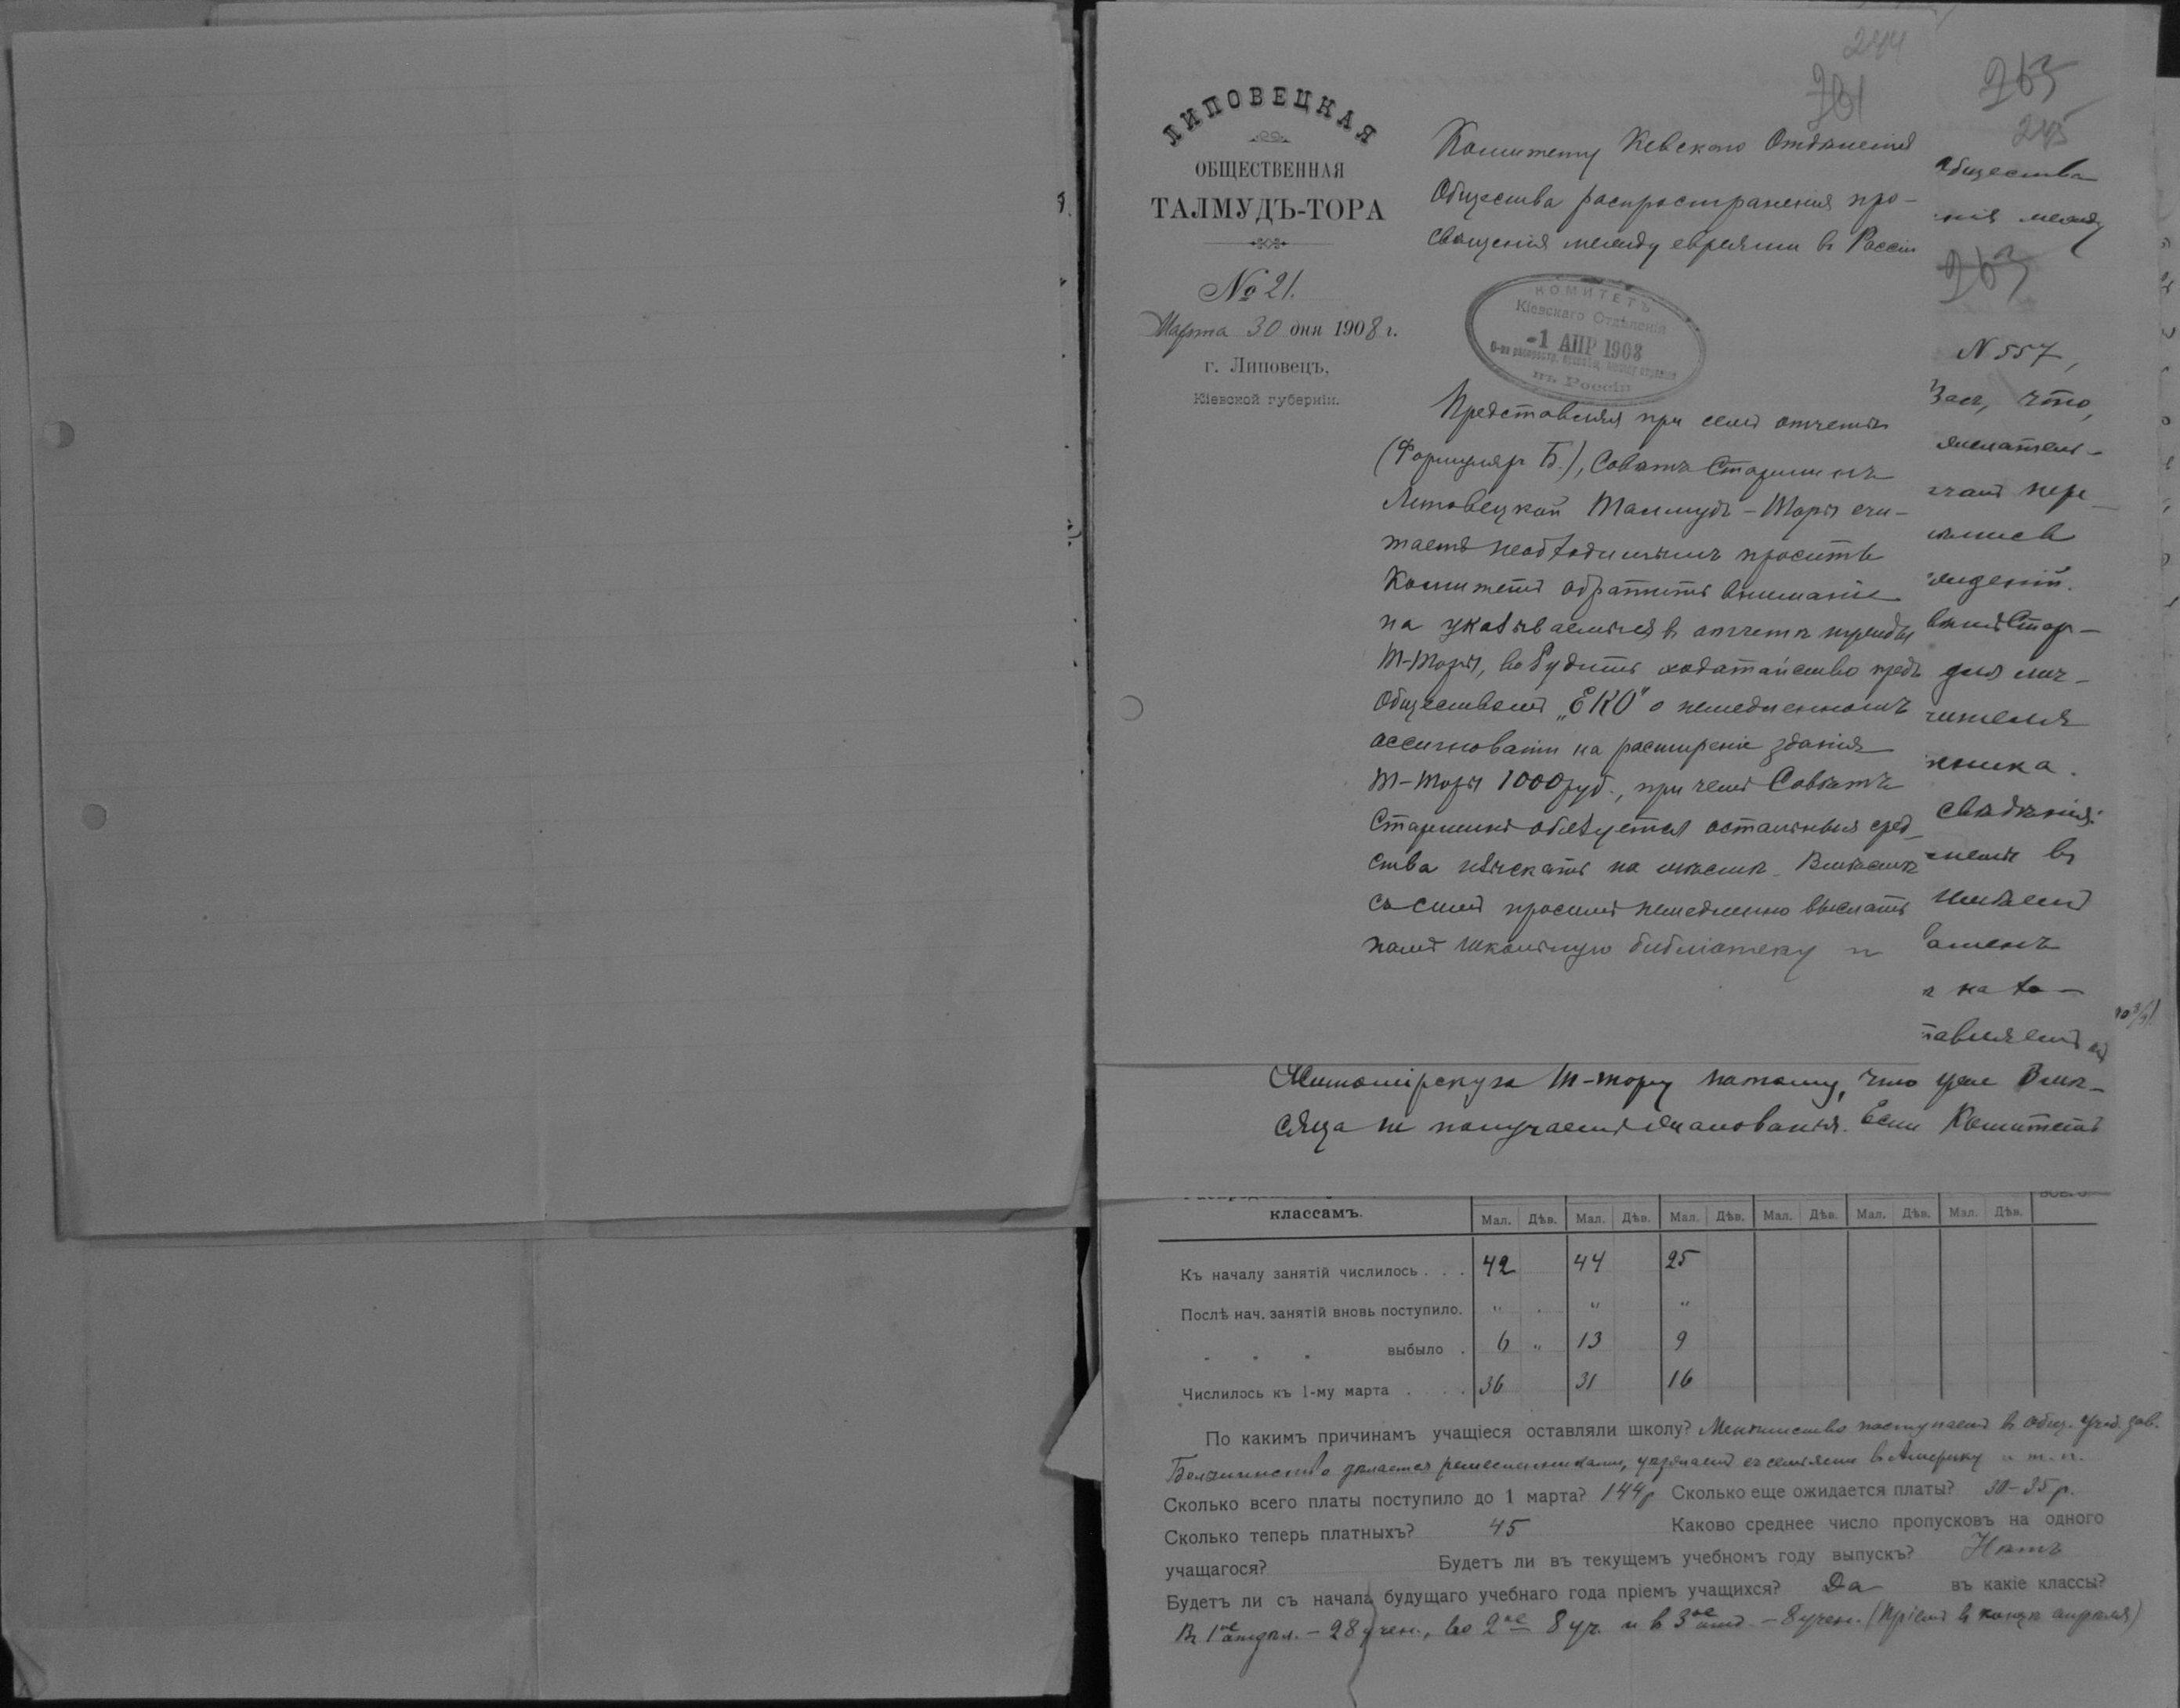 244
261
ЛИПОВЕЦКАЯ
ОБЩЕСТВЕННАЯ
ТАЛМУДЪ-ТОРА
№ 21.
Марта 30 дня 1908 г.
г. Липовецъ,
Кіевской губерніи.
Комитету Кевскаго Отдѣленія
Общества распространенія про-
свѣщенія между евреями въ Россіи
КОМИТЕТЪ
Кіевскаго Отдѣленія
-1 АПР 1908
О-ва распростр. просвѣщ. между евреями
въ Россіи
Представляя при семъ отчетъ
(Формуляръ Б.), Совѣтъ Старшинъ
Липовецкой Талмудъ-Торы счи-
таетъ необходимымъ просить
Комитетъ обратить вниманіе
на указываемыя въ отчетѣ нужды
Т-Торы, возбудить ходатайство предъ
Обществомъ „ЕКО" о немедленномъ
ассигнованіи на расширеніе зданія
Т-Торы 1000 руб., при чемъ Совѣтъ
Старшинъ обязуется остальныя сред-
ства изыскать на мѣстѣ. Вмѣстѣ
съ симъ просимъ немедленно выслать
намъ школьную библіотеку и
263
245
Общества
нія между
263
N 557,
Васъ, что,
желатель-
чаѣ пере
ждений.
для лич-
чителя
ника.
свѣдѣнія:
въ
тавляетъ
Житомірскую Т-тору потому, что уже 8 мѣ-
сяца не получаетъ жалованія. Если Комитетъ
классамъ.
Мал. Дѣв. Мал. Дѣв. Мал. Дѣв. Мал. Дѣв. Мал. Дѣв. Мал. Дѣв.
Къ началу занятій числилось . . . 42 44 25
Послѣ нач. занятій вновь поступило. " " "
" " " выбыло . 6 " 13 9
Числилось къ 1-му марта . . . . 36 31 16
По какимъ причинамъ учащіеся оставляли школу? Меньшинство поступаетъ въ общ. учеб. зав.
Большинство дѣлается ремесленниками, уѣзжаетъ съ семьями въ Америку и т. п.
Сколько всего платы поступило до 1 марта? 144 р Сколько еще ожидается платы? 30-35 р.
Сколько теперь платныхъ? 45 Каково среднее число пропусковъ на одного
учащагося? Будетъ ли въ текущемъ учебномъ году выпускъ? Нѣтъ
Будетъ ли съ начала будущаго учебнаго года пріемъ учащихся? Да въ какіе классы?
Въ 1ое отдѣл. - 28 учен., во 2ое 8 уч. и в 3ое отд - 8 учен. (Пріемъ въ концѣ апрѣля)